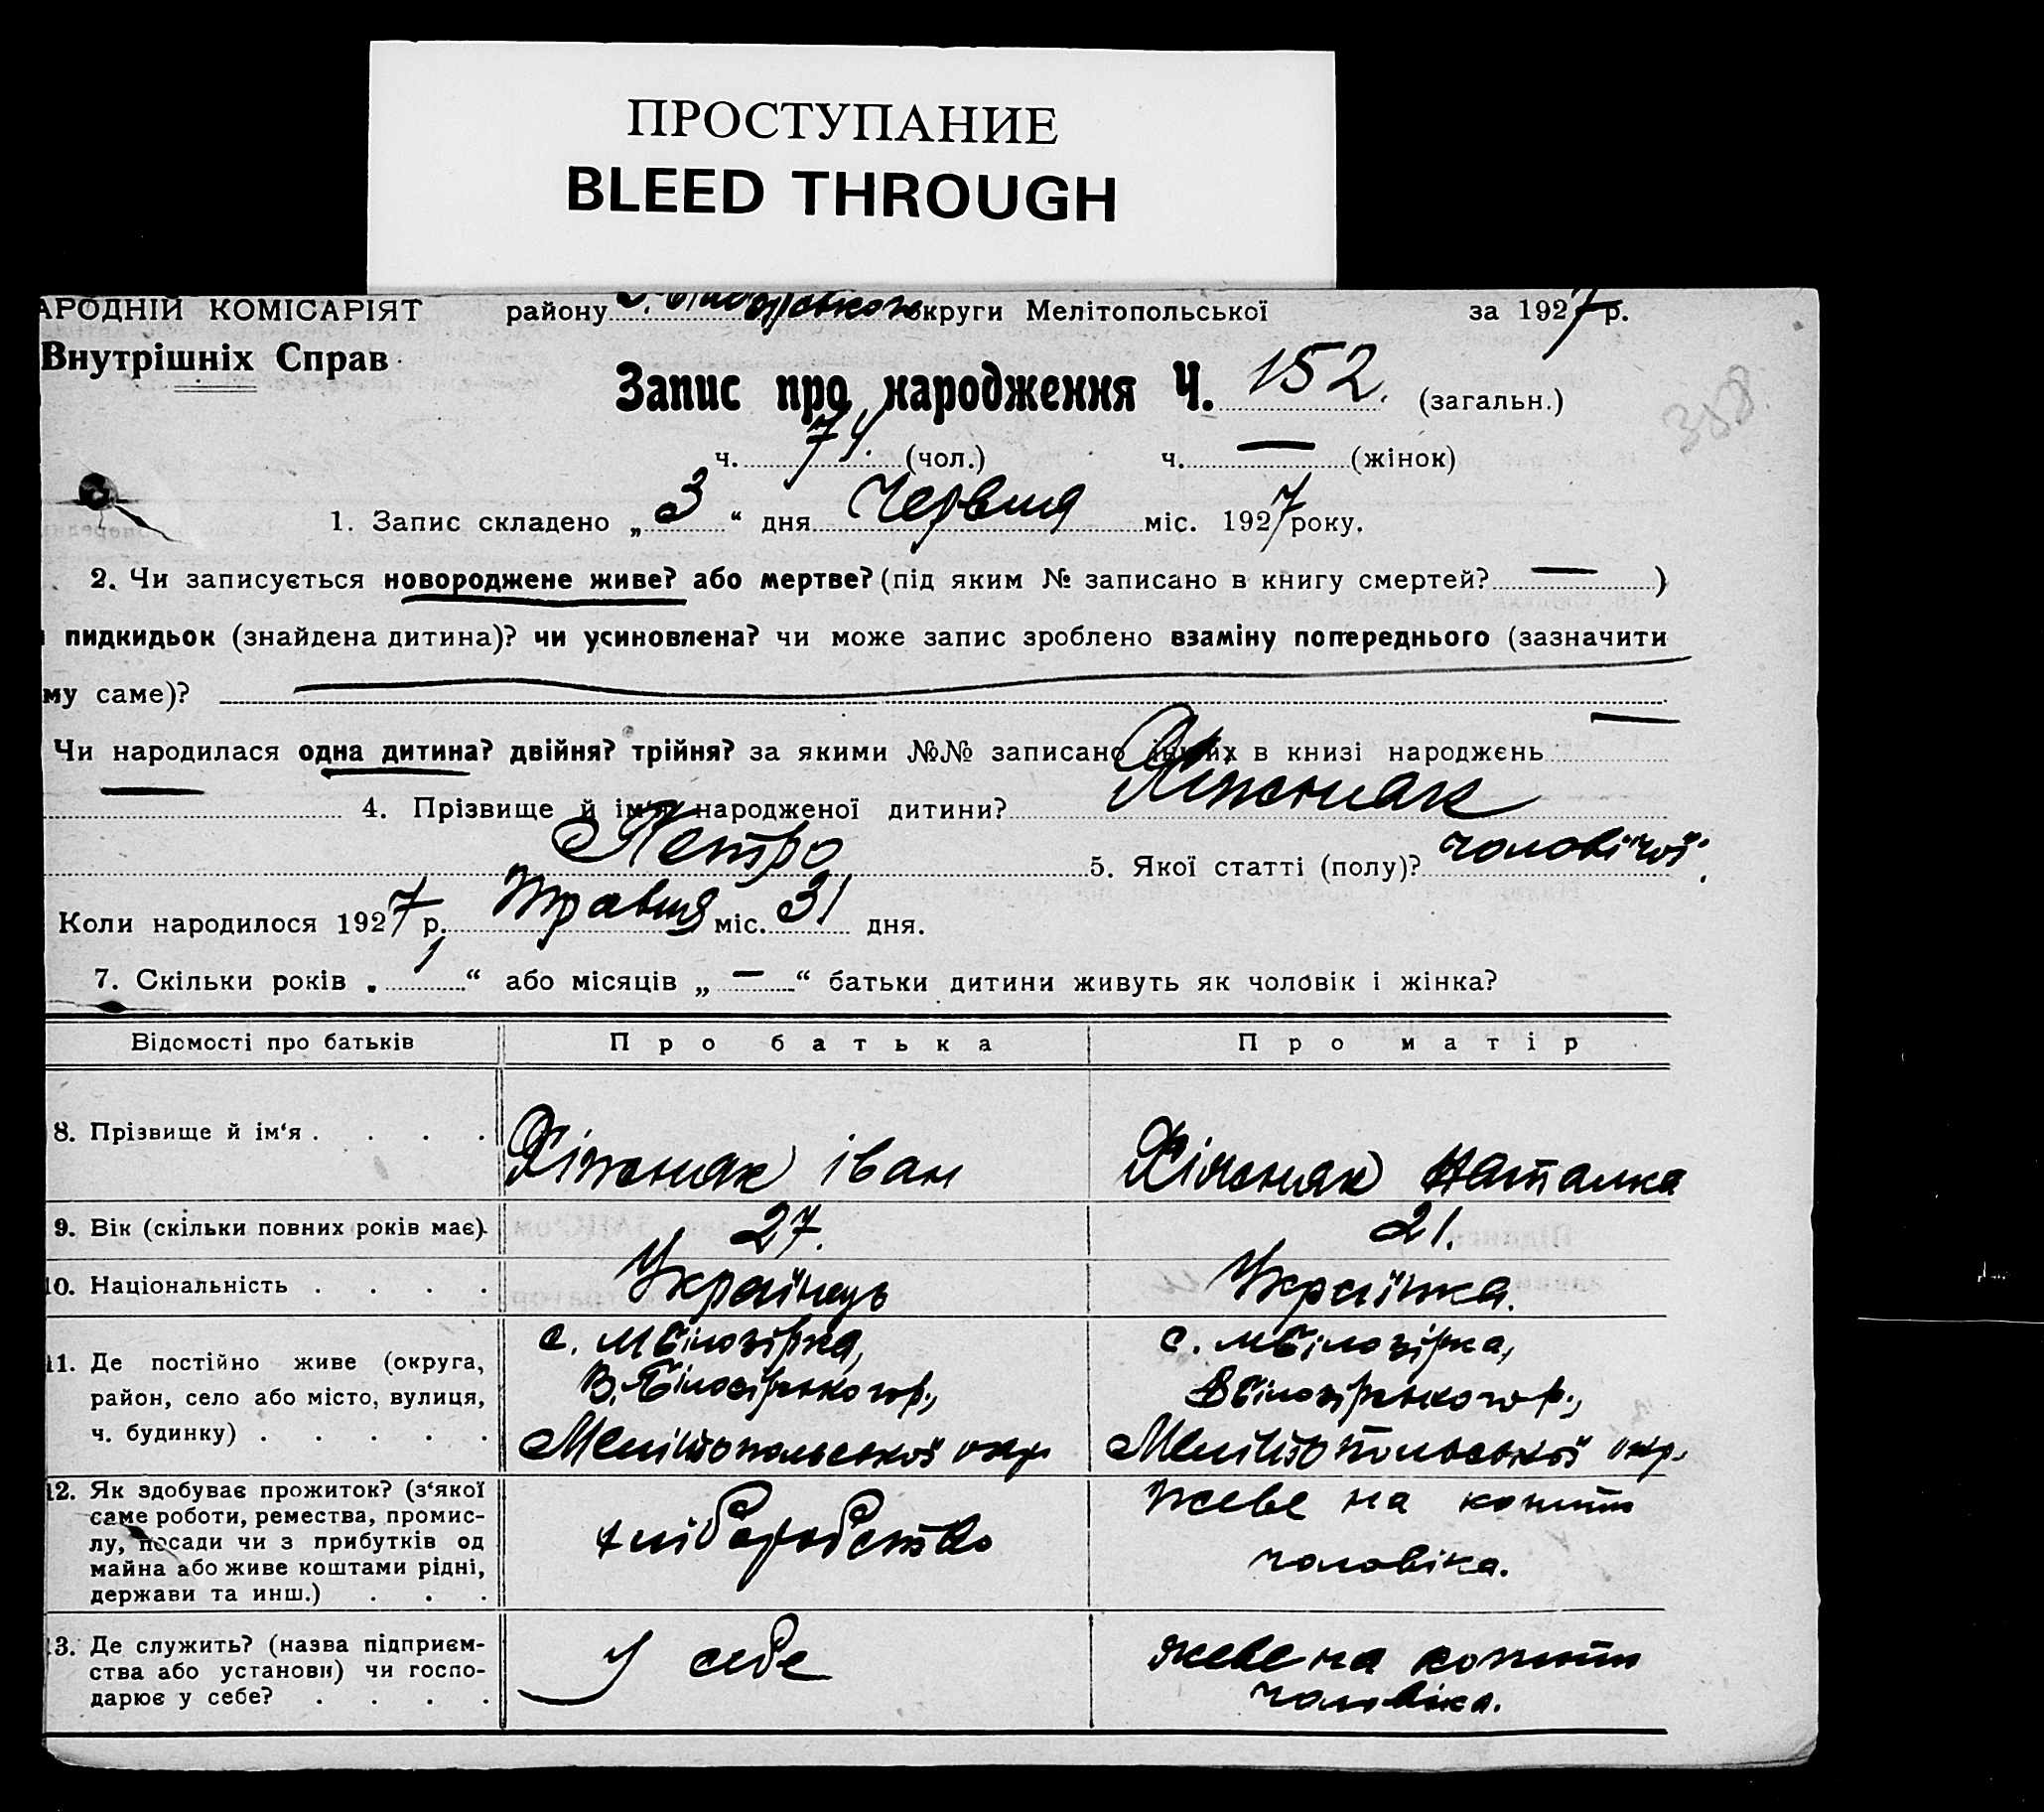 ПРОСТУПАНИЕ
BLEED THROUGH
АРОДНІЙ КОМІСАРІЯТ району округи Мелітопольської за 1927 р.
Внутрішніх Справ
Запис про народження Ч. 152. (загальн.)
358
ч. 74. (чол.) ч. — (жінок)
1. Запис складено „ 3 “ дня Червня міс. 1927 року.
2. Чи записується новороджене живе? або мертве? (під яким № записано в книгу смертей? — )
пидкидьок (знайдена дитина)? чи усиновлена? чи може запис зроблено взаміну попереднього (зазначити
му саме)?
Чи народилася одна дитина? двійня? трійня? за якими №№ записано інших в книзі народжень —
— 4. Прізвище й ім'я народженої дитини? Хіжняк
Петро 5. Якої статті (полу)? чоловічої.
Коли народилося 1927 р. Травня міс. 31 дня.
7. Скільки років „ 1 “ або місяців „ — “ батьки дитини живуть як чоловік і жінка?
Відомості про батьків Про батька Про матір
8. Прізвище й ім‘я . . . . Хіжняк Іван Хіжняк Наталка
9. Вік (скільки повних років має). 27. 21.
10. Національність . . . . Українець Українка.
11. Де постійно живе (округа, с. М Білозірка, с. М Білозірка,
район, село або місто, вулиця, В. Білозірського р., В Білозірського р.,
ч. будинку) . . . . . Мелітопольської окр. Мелітопольської окр.
12. Як здобуває прожиток? (з‘якої живе на кошти
саме роботи, ремества, промис-
лу, посади чи з прибутків од хліборобство
майна або живе коштами рідні, чоловіка.
держави та инш.) . . .
13. Де служить? (назва підприєм- у себе живе на кошти
ства або установи) чи госпо- чоловіка.
дарює у себе? . . . .